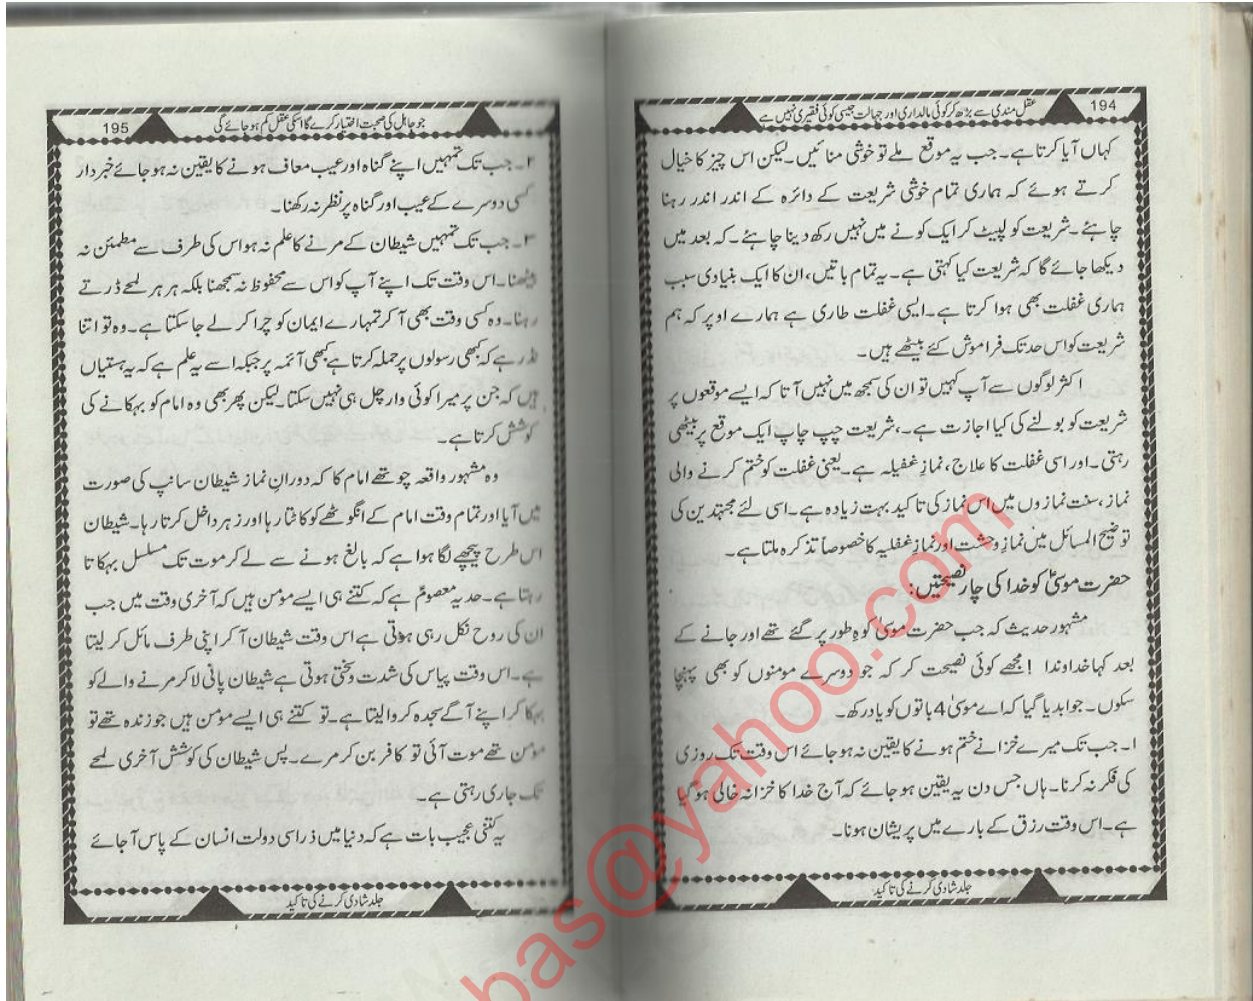 194
عقل مندی سے بڑھ کر کوئی مالداری اور جہالت جیسی کوئی فقیری نہیں ہے
کہاں آیا کرتا ہے۔ جب یہ موقع ملے تو خوشی منائیں۔ لیکن اس چیز کا خیال
کرتے ہوئے کہ ہماری تمام خوشی شریعت کے دائرہ کے اندر اندر رہنا
چاہئے۔ شریعت کو لپیٹ کر ایک کونے میں نہیں رکھ دینا چاہئے۔ کہ بعد میں
دیکھا جائے گا کہ شریعت کیا کہتی ہے۔ یہ تمام باتیں، ان کا ایک بنیادی سبب
ہماری غفلت بھی ہوا کرتا ہے۔ ایسی غفلت طاری ہے ہمارے اوپر کہ ہم
شریعت کو اس حد تک فراموش کئے بیٹھے ہیں۔
اکثر لوگوں سے آپ کہیں تو ان کی سمجھ میں نہیں آتا کہ ایسے موقعوں پر
شریعت کو بولنے کی کیا اجازت ہے۔، شریعت چپ چاپ ایک موقع پر بیٹھی
رہتی۔ اور اسی غفلت کا علاج، نمازِ غفیلہ ہے۔ یعنی غفلت کو ختم کرنے والی
نماز، سنت نمازوں میں اس نماز کی تاکید بہت زیادہ ہے۔ اسی لئے مجتہدین کی
توضیح المسائل میں نمازِ وحشت اور نمازِ غفلیہ کا خصوصاً تذکرہ ملتا ہے۔
حضرت موسیٰؑ کو خدا کی چار نصیحتیں:
مشہور حدیث کہ جب حضرت موسیٰ کوہِ طور پر گئے تھے اور جانے کے
بعد کہا خداوندا ! مجھے کوئی نصیحت کر کہ جو دوسرے مومنوں کو بھی پہنچا
سکوں۔ جواب دیا گیا کہ اے موسیٰ 4 باتوں کو یاد رکھ۔
۱۔ جب تک میرے خزانے ختم ہونے کا یقین نہ ہو جائے اس وقت تک روزی
کی فکر نہ کرنا۔ ہاں جس دن یہ یقین ہو جائے کہ آج خدا کا خزانہ خالی ہو گیا
ہے۔ اس وقت رزق کے بارے میں پریشان ہونا۔
جلد شادی کرنے کی تاکید
195
جو جاہل کی صحبت اختیار کرے گا اسکی عقل کم ہو جائے گی
۲۔ جب تک تمہیں اپنے گناہ اور عیب معاف ہونے کا یقین نہ ہو جائے خبردار
کسی دوسرے کے عیب اور گناہ پر نظر نہ رکھنا۔
۳۔ جب تک تمہیں شیطان کے مرنے کا علم نہ ہو اس کی طرف سے مطمئن نہ
بیٹھنا۔ اس وقت تک اپنے آپ کو اس سے محفوظ نہ سمجھنا بلکہ ہر ہر لمحے ڈرتے
رہنا۔ وہ کسی وقت بھی آ کر تمہارے ایمان کو چرا کر لے جا سکتا ہے۔ وہ تو اتنا
نڈر ہے کہ کبھی رسولوں پر حملہ کرتا ہے کبھی آئمہ پر جبکہ اسے یہ علم ہے کہ یہ ہستیاں
ہیں کہ جن پر میرا کوئی وار چل ہی نہیں سکتا لیکن پھر بھی وہ امام کو بہکانے کی
کوشش کرتا ہے۔
وہ مشہور واقعہ چوتھے امام کا کہ دورانِ نماز شیطان سانپ کی صورت
میں آیا اور تمام وقت امام کے انگوٹھے کو کاٹتا رہا اور زہر داخل کرتا رہا۔ شیطان
اس طرح پیچھے لگا ہوا ہے کہ بالغ ہونے سے لے کر موت تک مسلسل بہکاتا
رہتا ہے۔ حدیہ معصومؑ ہے کہ کتنے ہی ایسے مؤمن ہیں کہ آخری وقت میں جب
ان کی روح نکل رہی ہوتی ہے اس وقت شیطان آ کر اپنی طرف مائل کر لیتا
ہے۔ اس وقت پیاس کی شدت و سختی ہوتی ہے شیطان پانی لا کر مرنے والے کو
بہکا کر اپنے آگے سجدہ کروا لیتا ہے۔ تو کتنے ہی ایسے مؤمن ہیں جو زندہ تھے تو
مؤمن تھے موت آئی تو کافر بن کر مرے۔ پس شیطان کی کوشش آخری لمحے
تک جاری رہتی ہے۔
یہ کتنی عجیب بات ہے کہ دنیا میں ذرا سی دولت انسان کے پاس آ جائے
جلد شادی کرنے کی تاکید
bas@yahoo.com